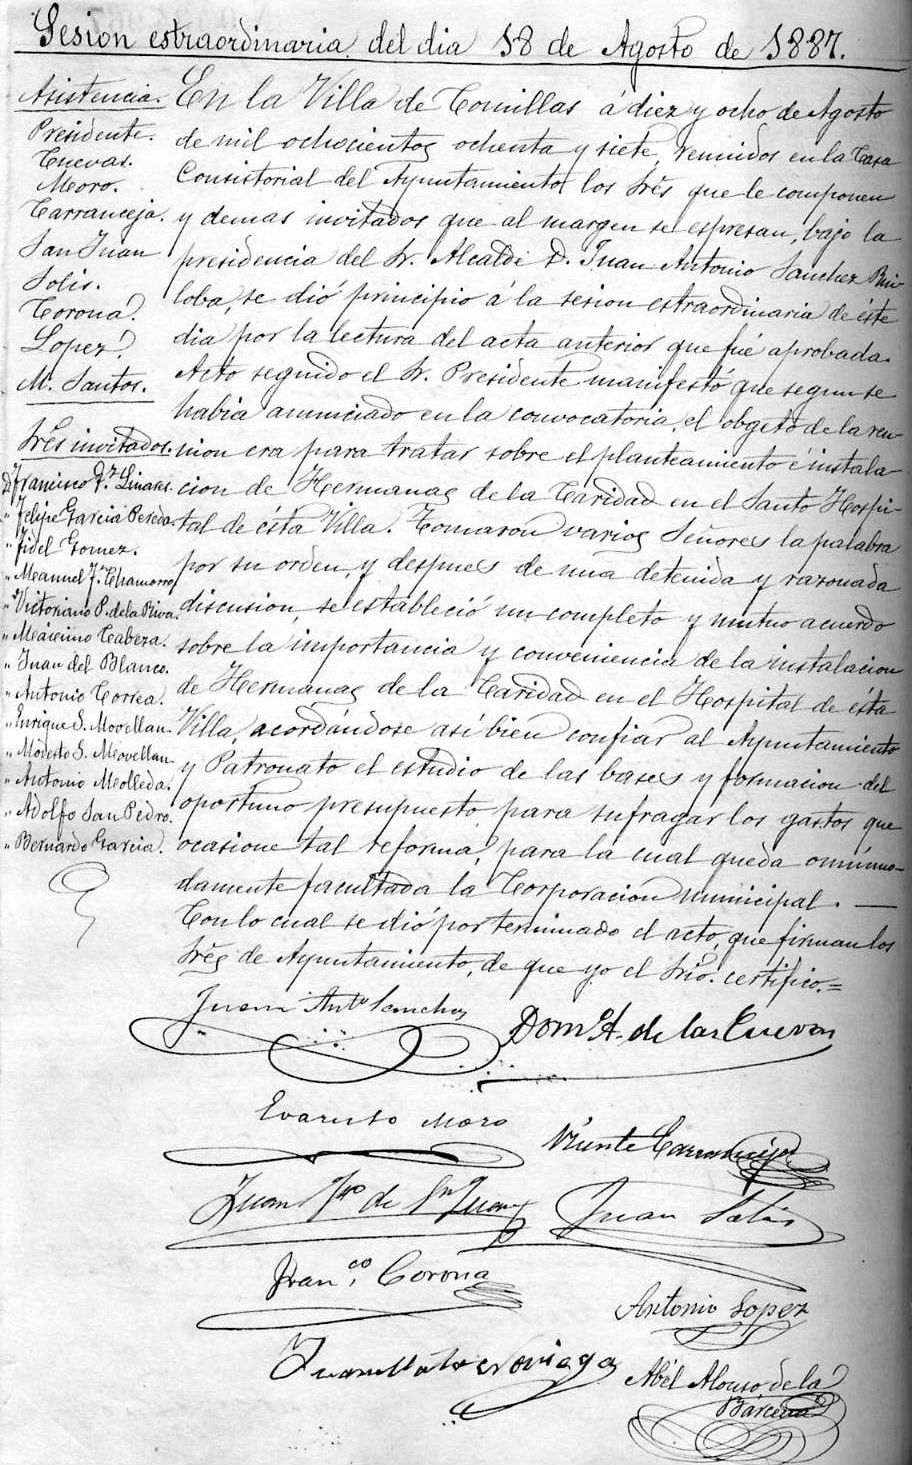 Sesion estraordinaria del dia 18 de Agosto de 1887.
Asistencia.
Presidente.
Cuevas.
Moro.
Carranceja.
San Juan
Solis.
Corona.
Lopez.
M. Santos.
Srēs invitados.
D. Francisco Linares.
" Felipe Garcia Pereda.
" Fidel Gomez.
" Manuel F. Chamorro
" Victoriano P. de la Riva.
" Máximo Cabeza.
" Juan del Blanco.
" Antonio Correa.
" Enrique S. Movellan.
" Modesto S. Movellan
" Antonio Molleda.
" Adolfo San Pedro.
" Bernardo Garcia.
En la Villa de Comillas á diez y ocho de Agosto
de mil ochocientos ochenta y siete, reunidos en la Casa
Consistorial del Ayuntamiento los Srēs que le componen
y demas invitados que al margen se espresan, bajo la
presidencia del Sr. Alcalde D. Juan Antonio Sanchez Rui-
loba, se dió principio á la sesion estraordinaria de éste
dia por la lectura del acta anterior que fué aprobada.
Acto seguido el Sr. Presidente manifestó que segun se
habia anunciado en la convocatoria, el obgeto de la reu-
nion era para tratar sobre el planteamiento é instala-
cion de Hermanas de la Caridad en el Santo Hospi-
tal de ésta Villa. Tomaron varios Señores la palabra
por su orden, y despues de una detenida y razonada
discusion, se estableció un completo y mutuo acuerdo
sobre la importancia y conveniencia de la instalacion
de Hermanas de la Caridad en el Hospital de ésta
Villa, acordándose asi bien confiar al Ayuntamiento
y Patronato el estudio de las bases y formacion del
oportuno presupuesto para sufragar los gastos que
ocasione tal reforma, para la cual queda omnimo-
damente facultada la Corporacion municipal. —
Con lo cual se dió por terminado el acto, que firman los
Srēs de Ayuntamiento, de que yo el Srio. certifico.=
Juan Antº Sanchez
Dom. A. de las Cuevas
Evaristo Moro
Vicente Carranceja
Juan de Sn Juan
Juan Solis
Franco. Corona
Antonio Lopez
Noriega
Abél Alonso de la
Bárcena